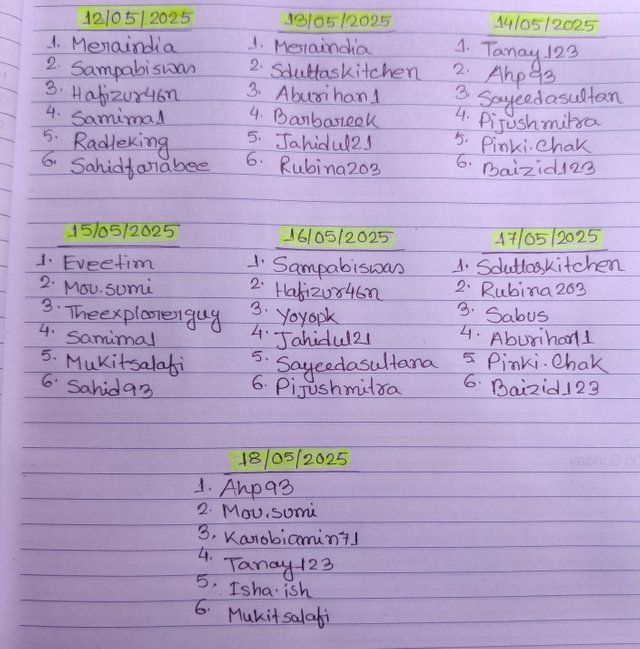 12/05/2025
1. Meraindia
2. Sampabiswas
3. Hafizur46n
4. Samima1
5. Radleking
6. Sahidfarabee
13/05/2025
1. Meraindia
2. Sduttaskitchen
3. Aburihan1
4. Barbareek
5. Jahidul21
6. Rubina203
14/05/2025
1. Tanay123
2. Ahp93
3. Sayeedasultan
4. Pijushmitra
5. Pinki.Chak
6. Baizid123
15/05/2025
1. Eveetim
2. Mou.sumi
3. Theexplorerguy
4. Samima1
5. Mukitsalafi
6. Sahid93
16/05/2025
1. Sampabiswas
2. Hafizur46n
3. Yoyopk
4. Jahidul21
5. Sayeedasultana
6. Pijushmitra
17/05/2025
1. Sduttaskitchen
2. Rubina203
3. Sabus
4. Aburihan1
5 Pinki.Chak
6. Baizid123
18/05/2025
1. Ahp93
2. Mou.sumi
3. Karobiamin71
4. Tanay123
5. Isha.ish
6. Mukitsalafi